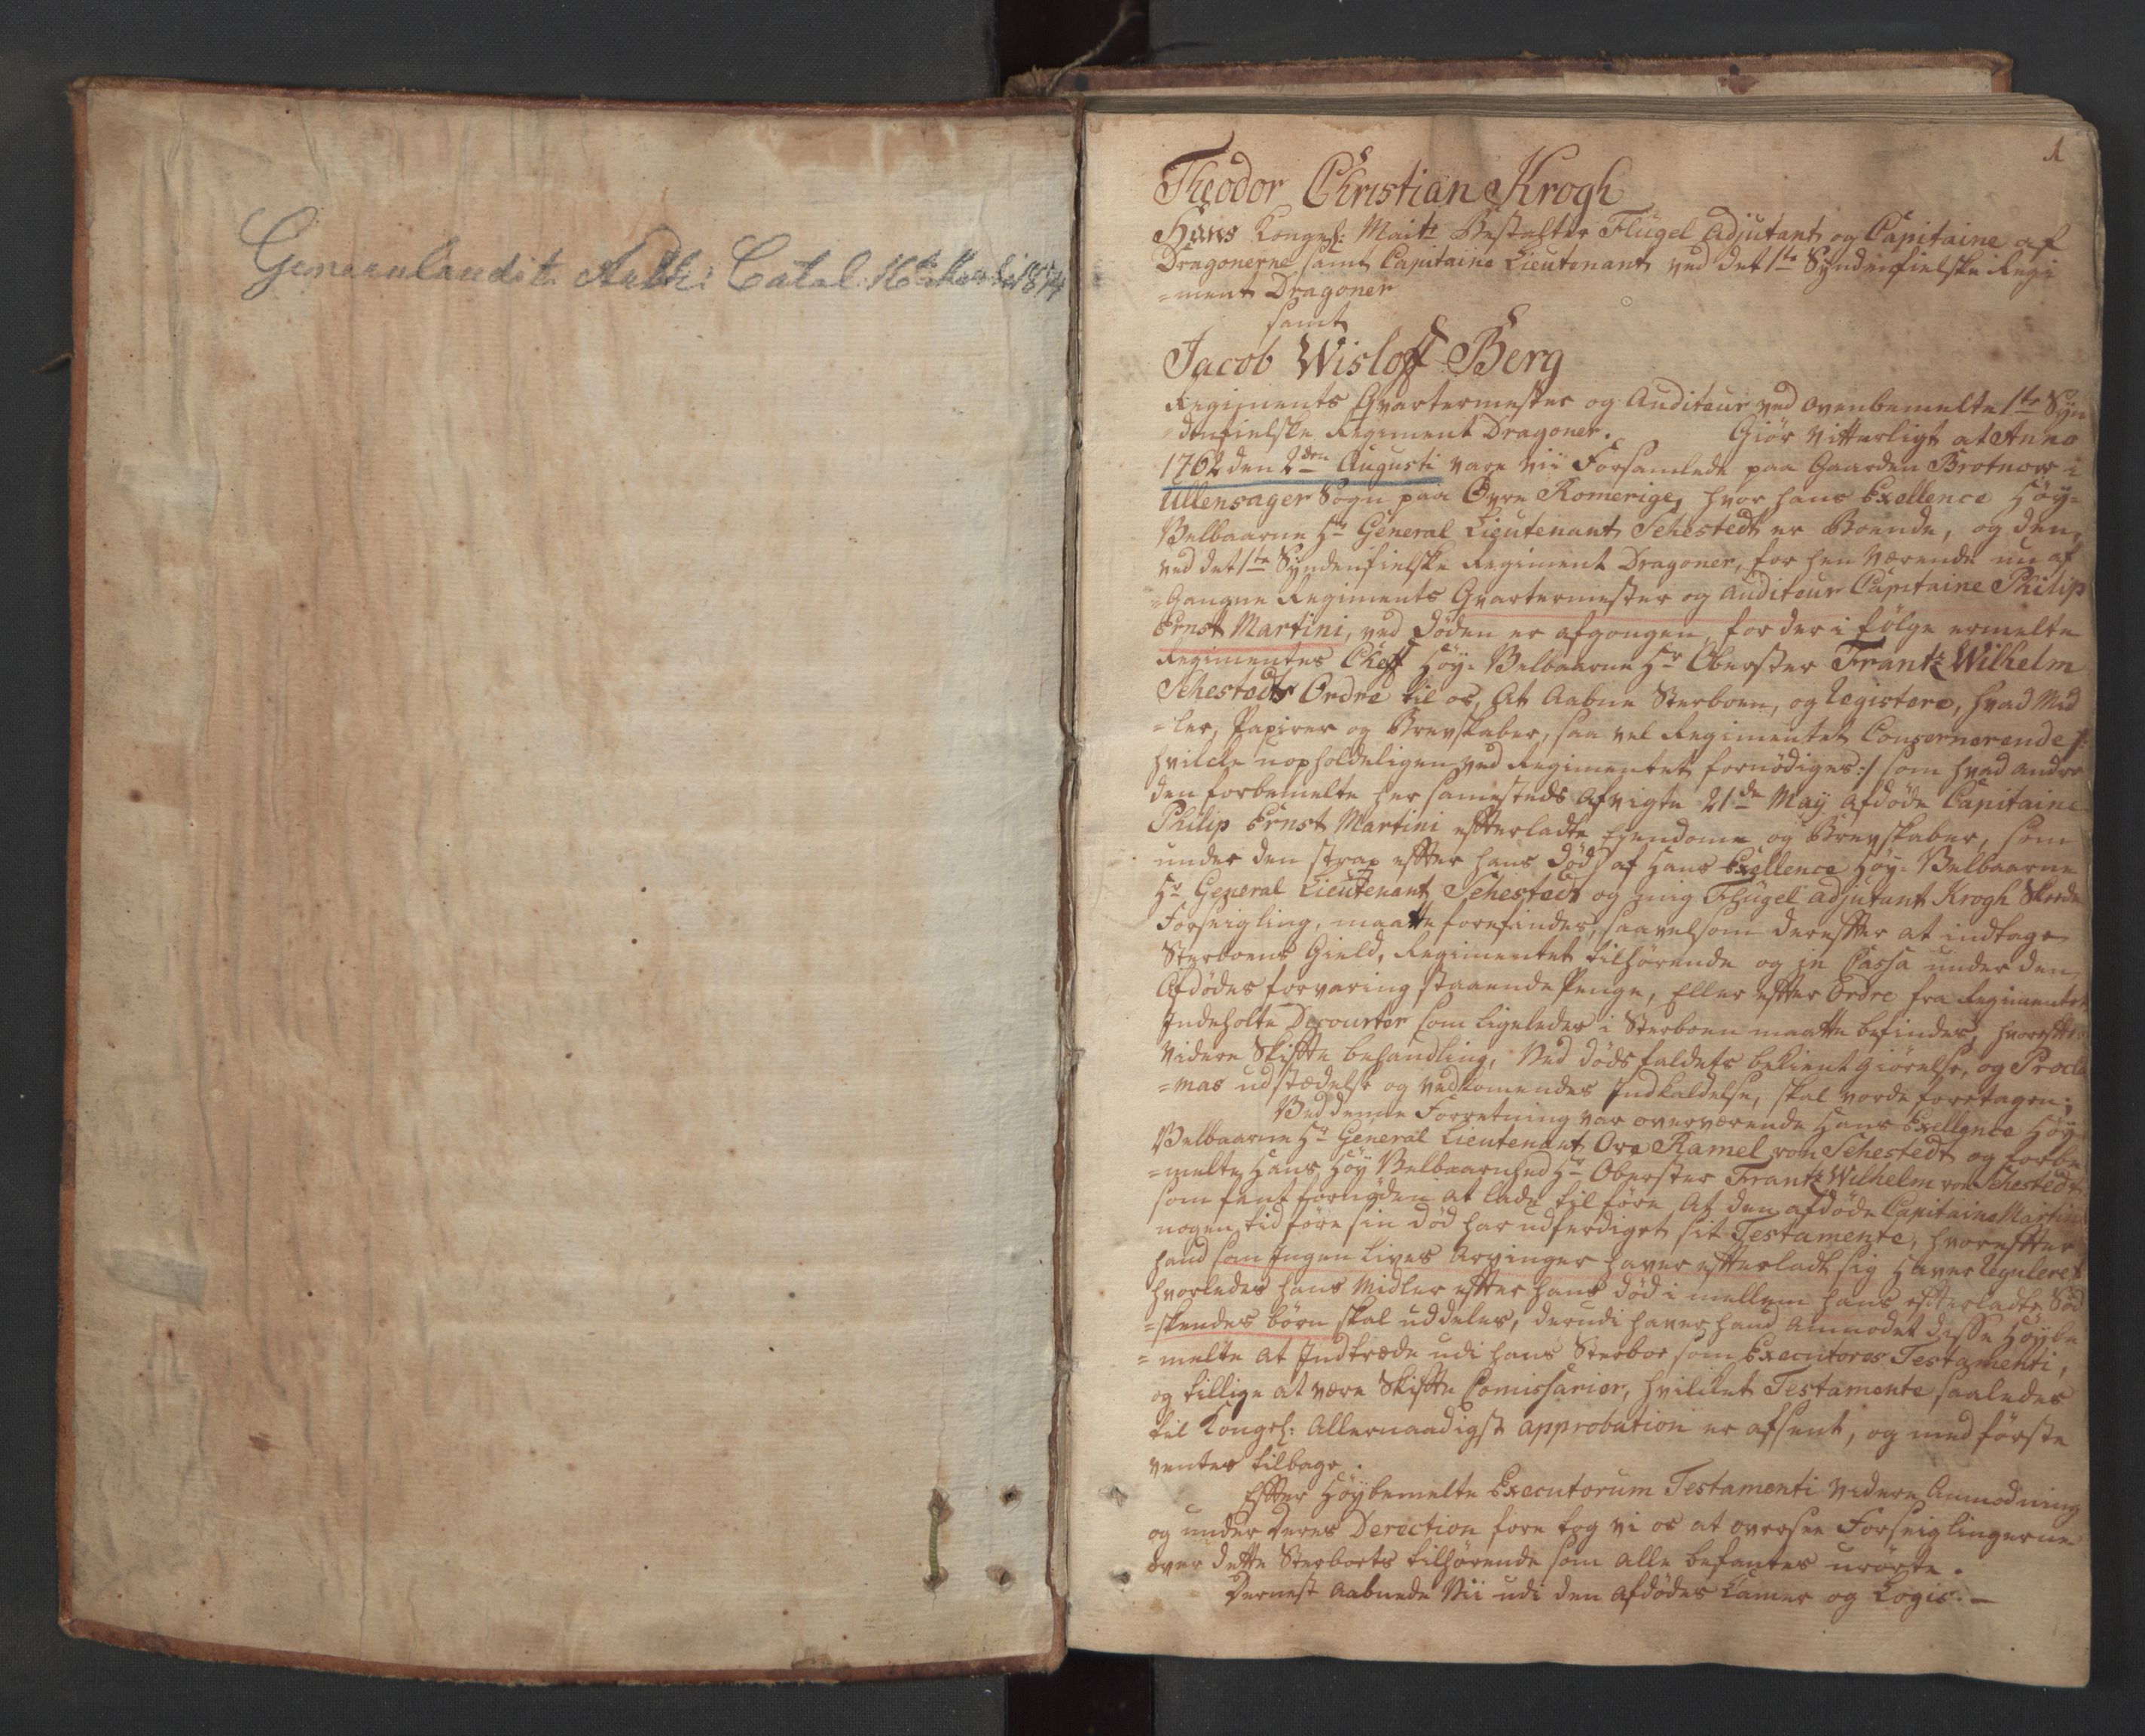 Generalaudit. Arch: Catal.
1
Theodor Christian Krogh
Hans Kongel: Maits Bestalter Flügel Adjutant og Capitaine af
Dragonerne samt Capitaine Lieutenant ved det 1te Syndenfielske Regi
=ment Dragoner
samt
Jacob Wisloff Berg
Regiments Qvartermester og Auditeur ved ovenbemelte 1te Syn
=denfielske Regiment Dragoner. Giør vitterligt at Anno
1762 den 2den Augusti vare vii Forsamlede paa Gaarden Brotnow i
Ullensager Sogn paa Øvre Romerige, hvor hans Exellence Høy=
Velbaarne Hr General Lieutenant Sehestedt er Boende, og den,
ved det 1te Syndenfielske Regiment Dragoner, for hen værende nu af
=Gangne Regiments Qvartermester og Auditeur Capitaine Philip
Ernst Martini, ved Døden er afgongen, for der i følge ermelte
Regimentes Cheff Høy-Velbaarne Hr Oberster Frantz Wilhelm
Sehestedts Ordre til os, At Aabne Sterboen, og Registere, hvad Mid
=ler, Papirer og Brevskaber, saa vel Regimentet Consernerende /:
hvilcke uopholdeligen ved Regimentet fornødiges :/ som hvad andre
den forbemelte her samesteds afvigte 21de Maÿ afdøde Capitaine
Philip Ernst Martini effterladte Ejendomme og Brevskaber, som
under den strax effter hans Død af Hans Exellence Høy-Velbaarne
Hr General Lieutenant Sehestedt og mig Flügel adjutant Krogh Skeede
Forseigling, maatte forefindes, saavelsom dereffter at indtage
Sterboens Gield, Regimentet tilhørende og in Cassa under den
Afdødes forvaring staaende Penge, Eller effter Ordre fra Regimentet
Indeholte Decourter som ligeledes i Sterboen maatte befindes, hvoreffter
videre Skiftte behandling, Ved Døds faldets bekient Giørelse, og Procla
=mas udstædelse og vedkomendes Indkaldelse, skal vorde foretagen;
Ved denne Forretning var overværende Hans Exellence Høy
Velbaarne Hr General Lieutenant Ove Ramel von Sehestedt og forbe
=melte Hans Høy Velbaarnhed Hr Oberster Frantz Wilhelm von Sehestedt
som fant fornøden at lade til føre At den afdøde Capitaine Martini
nogen tid føre sin Død har udferdiget sit Testamente, hvoreffter
hand som Ingen Livs Arvinger haver effterladt sig Haver Reguleret
hvorledes hans Midler effter hans død i mellem hans effterladte Sød
=skendes børn skal uddeles, derudi haver hand Anmodet disse Høybe
=melte At Indtræde udi hans Sterboe som Executores Testamenti,
og tillige at være Skiftte Comissarier, hvilket Testamente saaledes
til Kongel: Allernaadigst approbation er afsent, og med første
ventes tilbage.
Effter Høybemelte Executorum Testamenti videre Anmodning
og under Deres Derection fore tog vi os at oversee Forseiglingerne
over dette Sterboets tilhørende som alle befantes urørte.
Dernest Aabnede Vii udi den Afdødes Camer og Logis. —